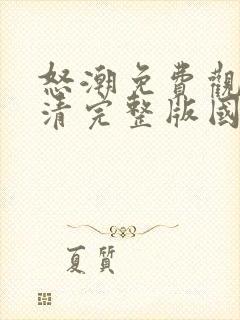 怒潮免費觀
清完整版國
夏質